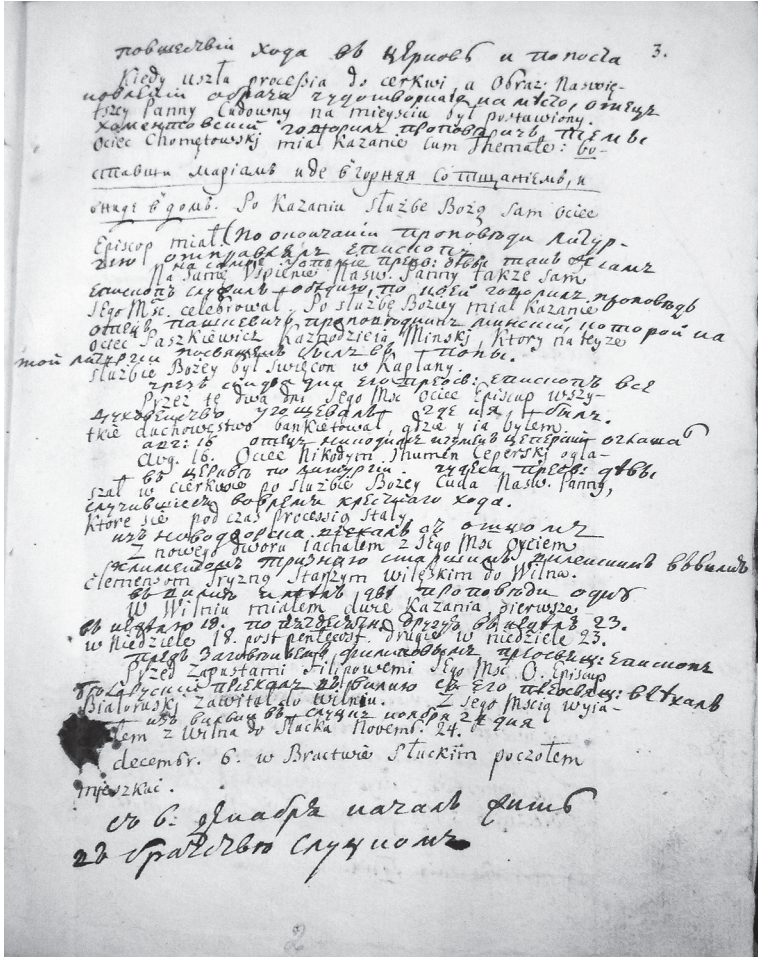 3.
повшествіи хода въ церковь и по поста
Kiedy uszła processia do cerkwi a Obraz Naswię-
новленіи образа чудотворнаго на мѣсто, отецъ
tszey Panny Cudowny na mieyscu był postawiony.
хоментовский говорилъ проповѣдь,
Ociec Chomętowskj miał Kazanie cum Themate: во-
ставши Маріамъ иде въ горняя со тщаніемъ, и
вниде въ домъ. Po Kazaniu służbę Bożą sam Ociec
Episcop miał. (По окончаніи проповѣди литур-
гію отправлялъ епископъ
на самое Успеніе пресв: дѣвы такъ же самъ
Na same Uspienie Nasw. Panny także sam
Епископъ служилъ обѣдню, по коей говорилъ проповѣдь
Jego Msc. celebrował. Po służbie Bożey miał Kazanie
отецъ Пашкевичъ проповѣдникъ минский, которой на
Ociec Paszkiewicz Kaznodzieia Minskj, Ktory na teyze
той литургіи посвященъ былъ въ Попы.
służbie Bożey był święcon w Kapłany.
чрезъ два дня его преосв: епископъ все
Przez te dwa dni Jego Msc Ociec Episcop wszy-
духовенство угощевалъ где и я былъ.
tkie duchowenstwo bankietował, gdzie y ia byłem.
авг: 16 отецъ никодимъ игуменъ цеперский оглаша
Aug. 16. Ociec Nikodym Ihumen Ceperskj ogła-
въ церквѣ по литургіи чудеса пресв: дѣвы
szał w cierkwie po służbie Bożey Cuda Nasw. Panny,
случившіесѧ вовремѧ крестнаго хода.
Ktore się pod czas processią stały.
изъ новодворска ѣхалъ съ отцомъ
Z nowego dworu iachałem z Jego Msc Oyciem
Климентомъ тризною старшимъ виленскимъ въ вильню
Clemensom Tryzną Starszym wileskim do Wilna.
въ вильнѣ имѣлъ двѣ проповѣди одну
W Wilniu miałem dwie Kazania, pierwsze
въ недѣлю 18. по пѧтдесѧтнице другую въ недѣлѣ 23.
w Niedziele 18. post pentecost. drugie w niedziele 23.
предъ заговѣніемъ филиповымъ преосвящ: Епископъ
Przed Zapustami Filipowemi Jego Msc. O. Episcop
бѣлоруский приехалъ въ вильню съ его преосвящ: выѣхалъ
Białoruskj zawitał do Wilniu. Z Jego Mscią wyia-
изъ вильны въ слуцкъ ноября 24 дня
łem z Wilna do Słucka Novemb. 24.
decembr. 6. w Bractwie Słuckim poczołem
mieszkac.
съ 6: декабрѧ началъ жить
въ братствѣ слуцкомъ
2